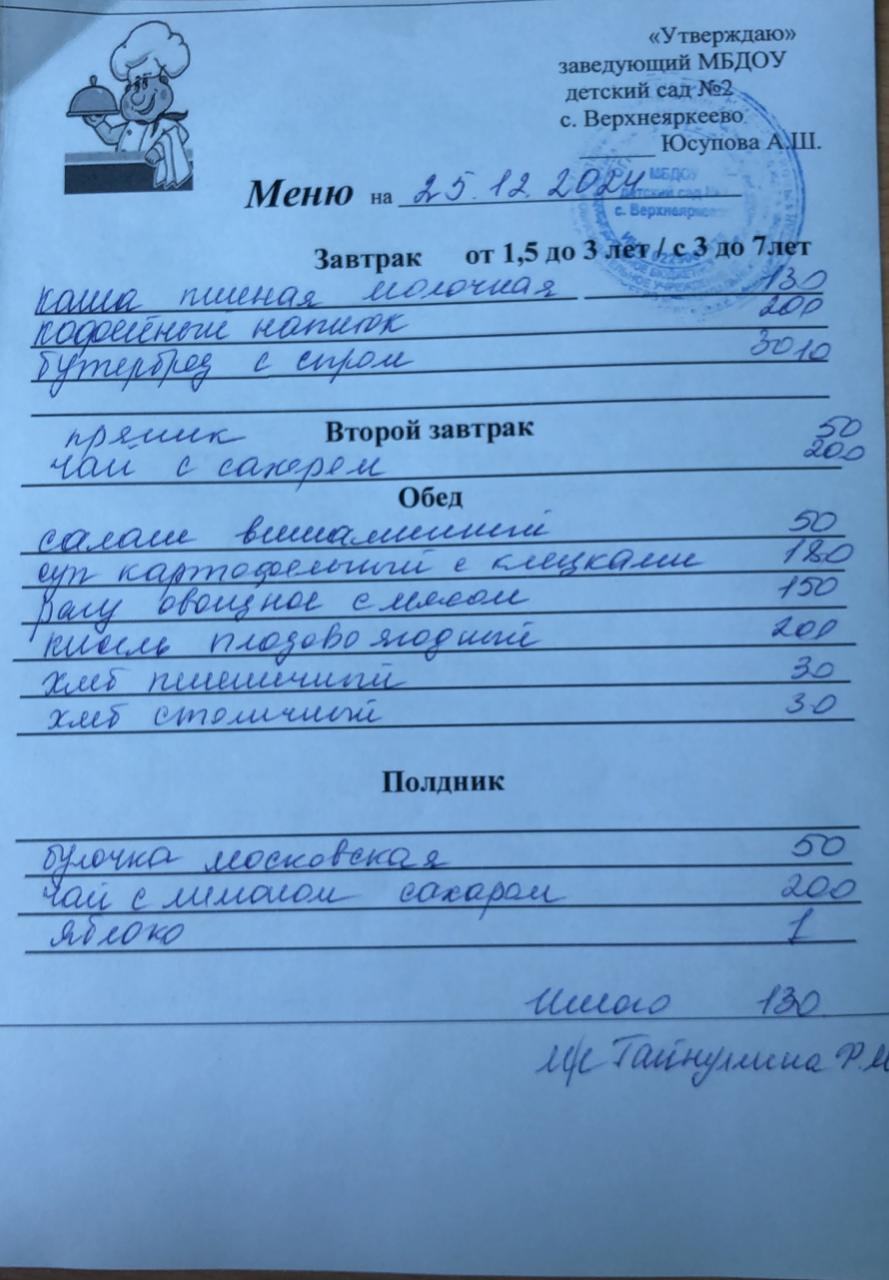 «Утверждаю»
заведующий МБДОУ
детский сад №2
с. Верхнеяркеево
______ Юсупова А.Ш.
МБДОУ
детский сад
с. Верхнеяркеево
Меню на 25.12.2024
Завтрак от 1,5 до 3 лет / с 3 до 7лет
каша пшеная молочная 130
кофейный напиток 200
бутерброд с сыром 30 10
Второй завтрак
пряник 50
чай с сахаром 200
Обед
салат витаминный 50
суп картофельный с клецками 180
рагу овощное с мясом 150
кисель плодово ягодный 200
хлеб пшеничный 30
хлеб столичный 30
Полдник
булочка московская 50
чай с лимоном сахаром 200
яблоко 1
Итого 130
м/с Гайнуллина Р.М